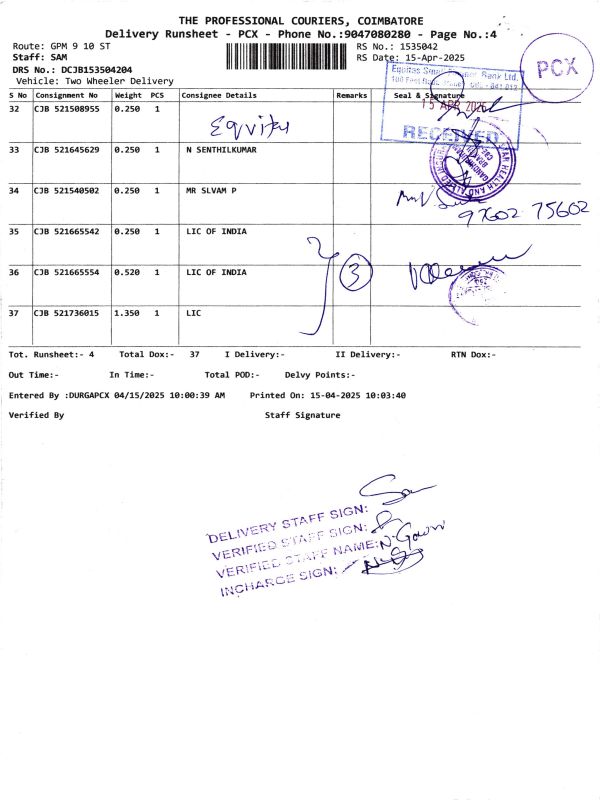 THE PROFESSIONAL COURIERS, COIMBATORE
Delivery Runsheet - PCX - Phone No.:9047080280 - Page No.:4
Route: GPM 9 10 ST
RS No.: 1535042
Staff: SAM
RS Date: 15-Apr-2025
DRS No.: DCJB153504204
Vehicle: Two Wheeler Delivery
PCX
S No Consignment No Weight PCS Consignee Details Remarks Seal & Signature
32 CJB 521508955 0.250 1
Equitas
15 APR 2025
RECEIVED
33 CJB 521645629 0.250 1 N SENTHILKUMAR
34 CJB 521540502 0.250 1 MR SLVAM P
97602 75602
35 CJB 521665542 0.250 1 LIC OF INDIA
36 CJB 521665554 0.520 1 LIC OF INDIA
3
37 CJB 521736015 1.350 1 LIC
Tot. Runsheet:- 4 Total Dox:- 37 I Delivery:- II Delivery:- RTN Dox:-
Out Time:- In Time:- Total POD:- Delvy Points:-
Entered By :DURGAPCX 04/15/2025 10:00:39 AM Printed On: 15-04-2025 10:03:40
Verified By Staff Signature
DELIVERY STAFF SIGN:
VERIFIED STAFF SIGN:
VERIFIED STAFF NAME:
INCHARGE SIGN: